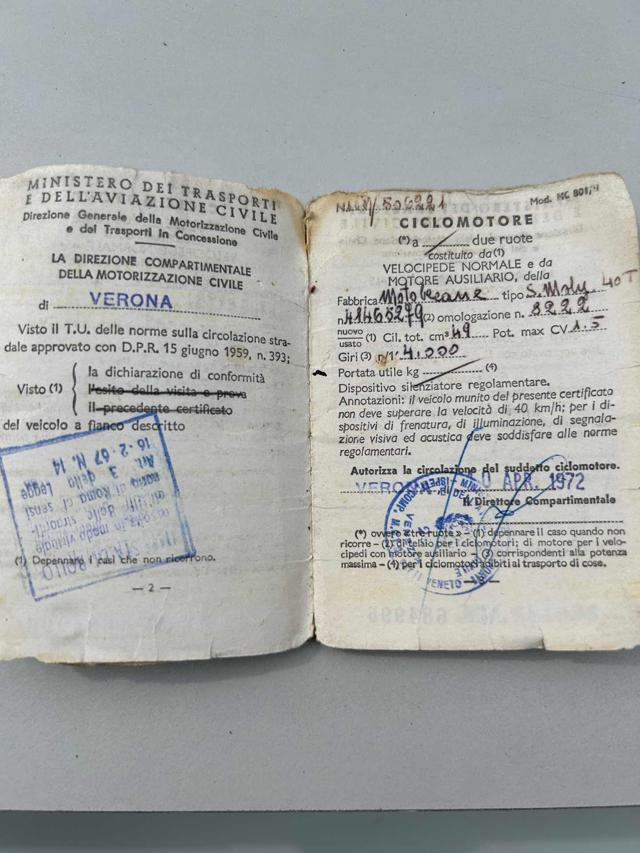 MINISTERO DEI TRASPORTI
E DELL'AVIAZIONE CIVILE
Direzione Generale della Motorizzazione Civile
e dei Trasporti in Concessione
LA DIREZIONE COMPARTIMENTALE
DELLA MOTORIZZAZIONE CIVILE
di VERONA
Visto il T.U. delle norme sulla circolazione stra-
dale approvato con D.P.R. 15 giugno 1959, n. 393;
Visto (1)
la dichiarazione di conformità
l'esito della visita e prova
Il precedente certificato
del veicolo a fianco descritto
in modo virtuale
Art. 3 della Legge
16-2-67 N. 14
(1) Depennare i casi che non ricorrono.
— 2 —
Mod. MC 801/M
CICLOMOTORE
(*) a due ruote
costituito da (1)
VELOCIPEDE NORMALE e da
MOTORE AUSILIARIO, della
Fabbrica Motobecane tipo S. Moby 40T
n. 41465279 (2) omologazione n. 8222
nuovo
usato (1) Cil. tot. cm³ 49 Pot. max CV 1.5
Giri (3) n/1' 4.000
Portata utile kg (4)
Dispositivo silenziatore regolamentare.
Annotazioni: il veicolo munito del presente certificato
non deve superare la velocità di 40 km/h; per i di-
spositivi di frenatura, di illuminazione, di segnala-
zione visiva ed acustica deve soddisfare alle norme
regolamentari.
Autorizza la circolazione del suddetto ciclomotore.
VERONA 0 APR. 1972
Il Direttore Compartimentale
(*) ovvero «tre ruote» – (1) depennare il caso quando non
ricorre – (2) di telaio per i ciclomotori; di motore per i velo-
cipedi con motore ausiliario – (3) corrispondenti alla potenza
massima – (4) per i ciclomotori adibiti al trasporto di cose.